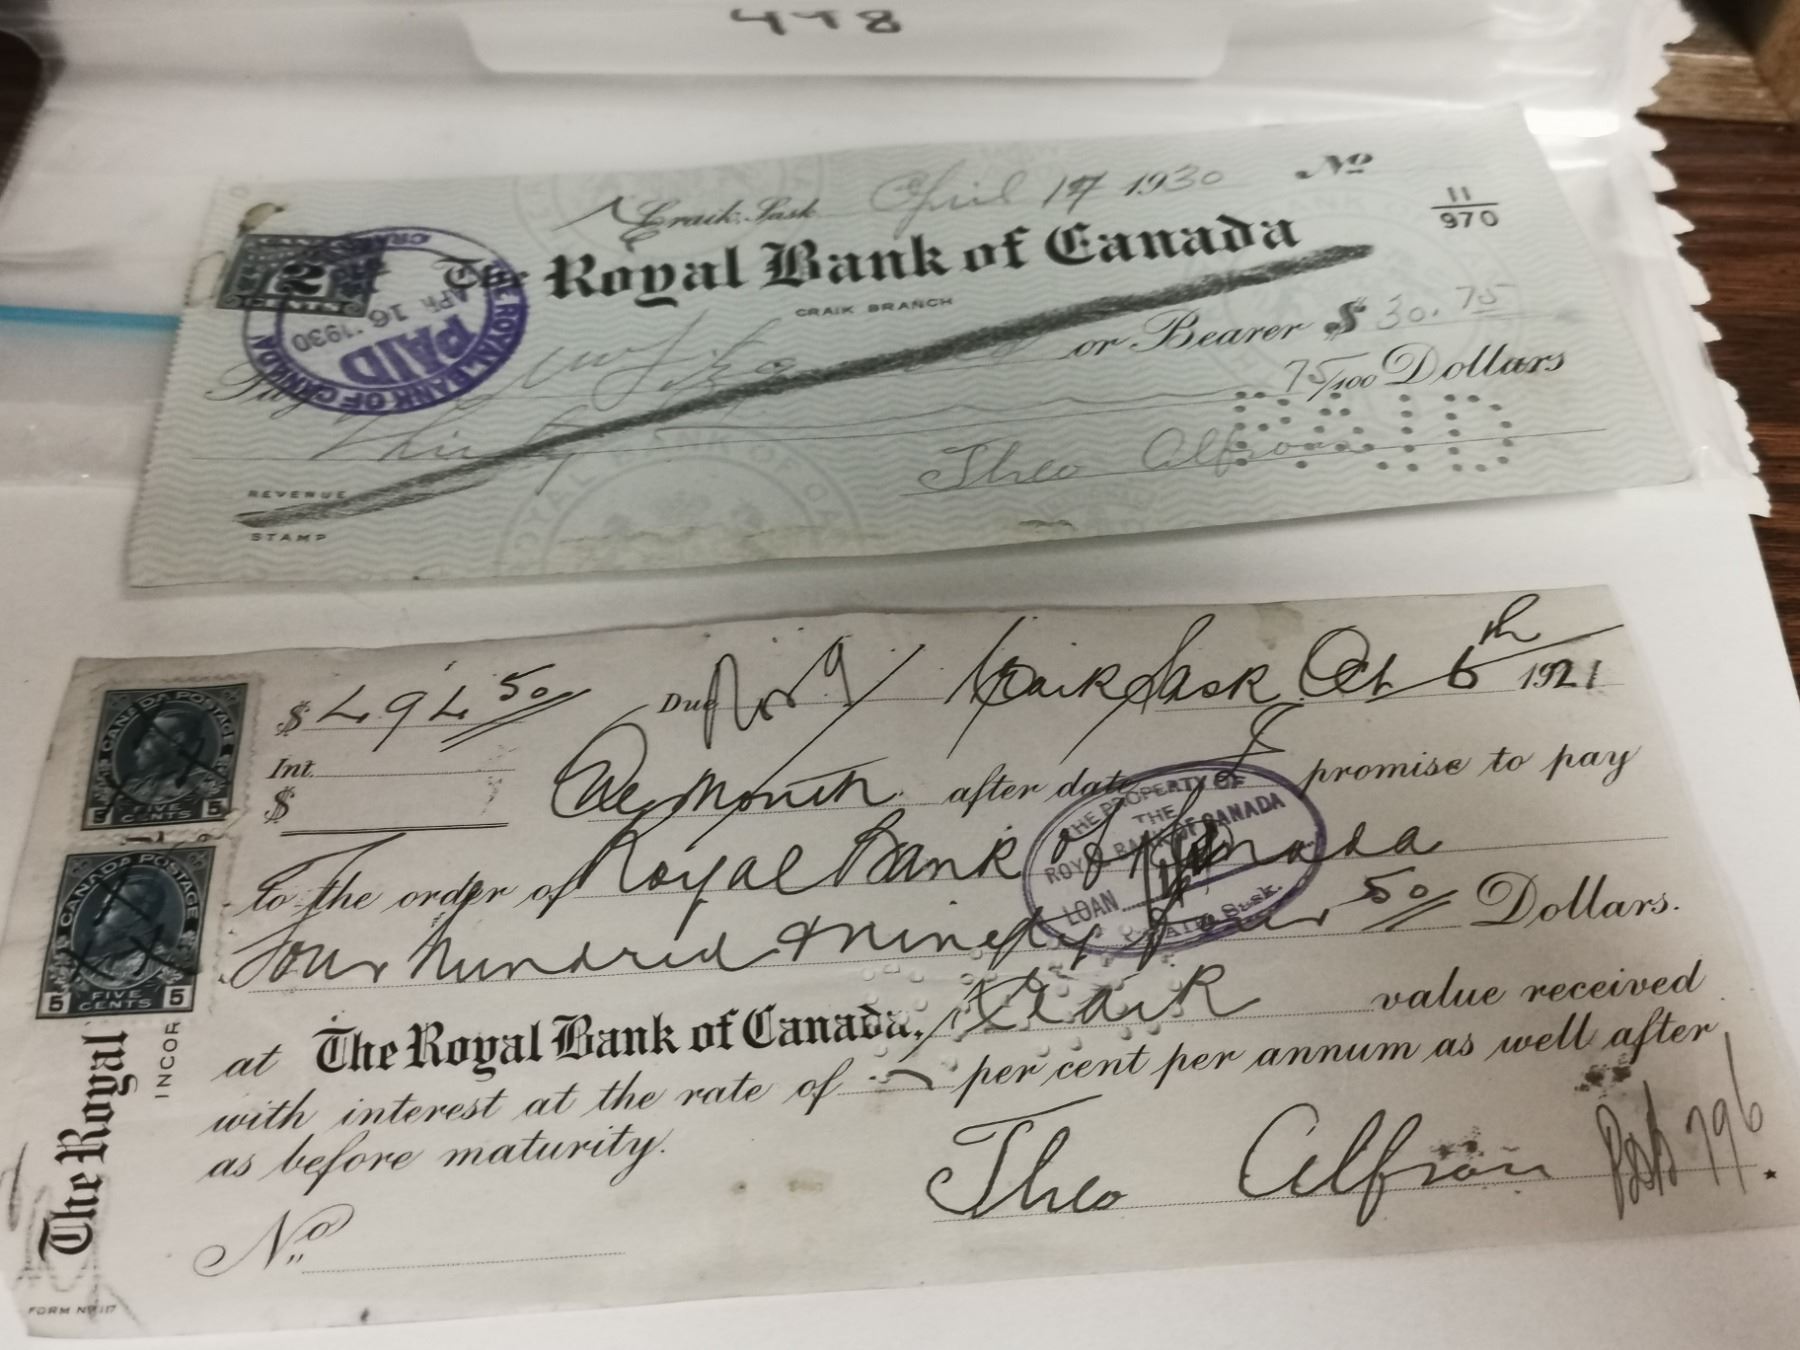 448
Craik, Sask. April 17 1930 No
11/970
The Royal Bank of Canada
CRAIK BRANCH
2 CENTS
THE ROYAL BANK OF CANADA
PAID
APR 16 1930
CRAIK
Pay or Bearer $ 30.75
Thirty 75/100 Dollars
PAID
Theo Alfson
REVENUE
STAMP
$ 494 50 Due Nov 9 Craik Sask Oct 6th 1921
Int.
$
One Month after date I promise to pay
to the order of Royal Bank of Canada
Four Hundred & Ninety Four 50 Dollars.
at The Royal Bank of Canada, Craik value received
with interest at the rate of per cent per annum as well after
as before maturity.
Theo Alfson
No.
CANADA POSTAGE
5 FIVE CENTS 5
CANADA POSTAGE
5 FIVE CENTS 5
THE PROPERTY OF
THE
ROYAL BANK OF CANADA
LOAN
Sask.
The Royal
INCOR
FORM No 117